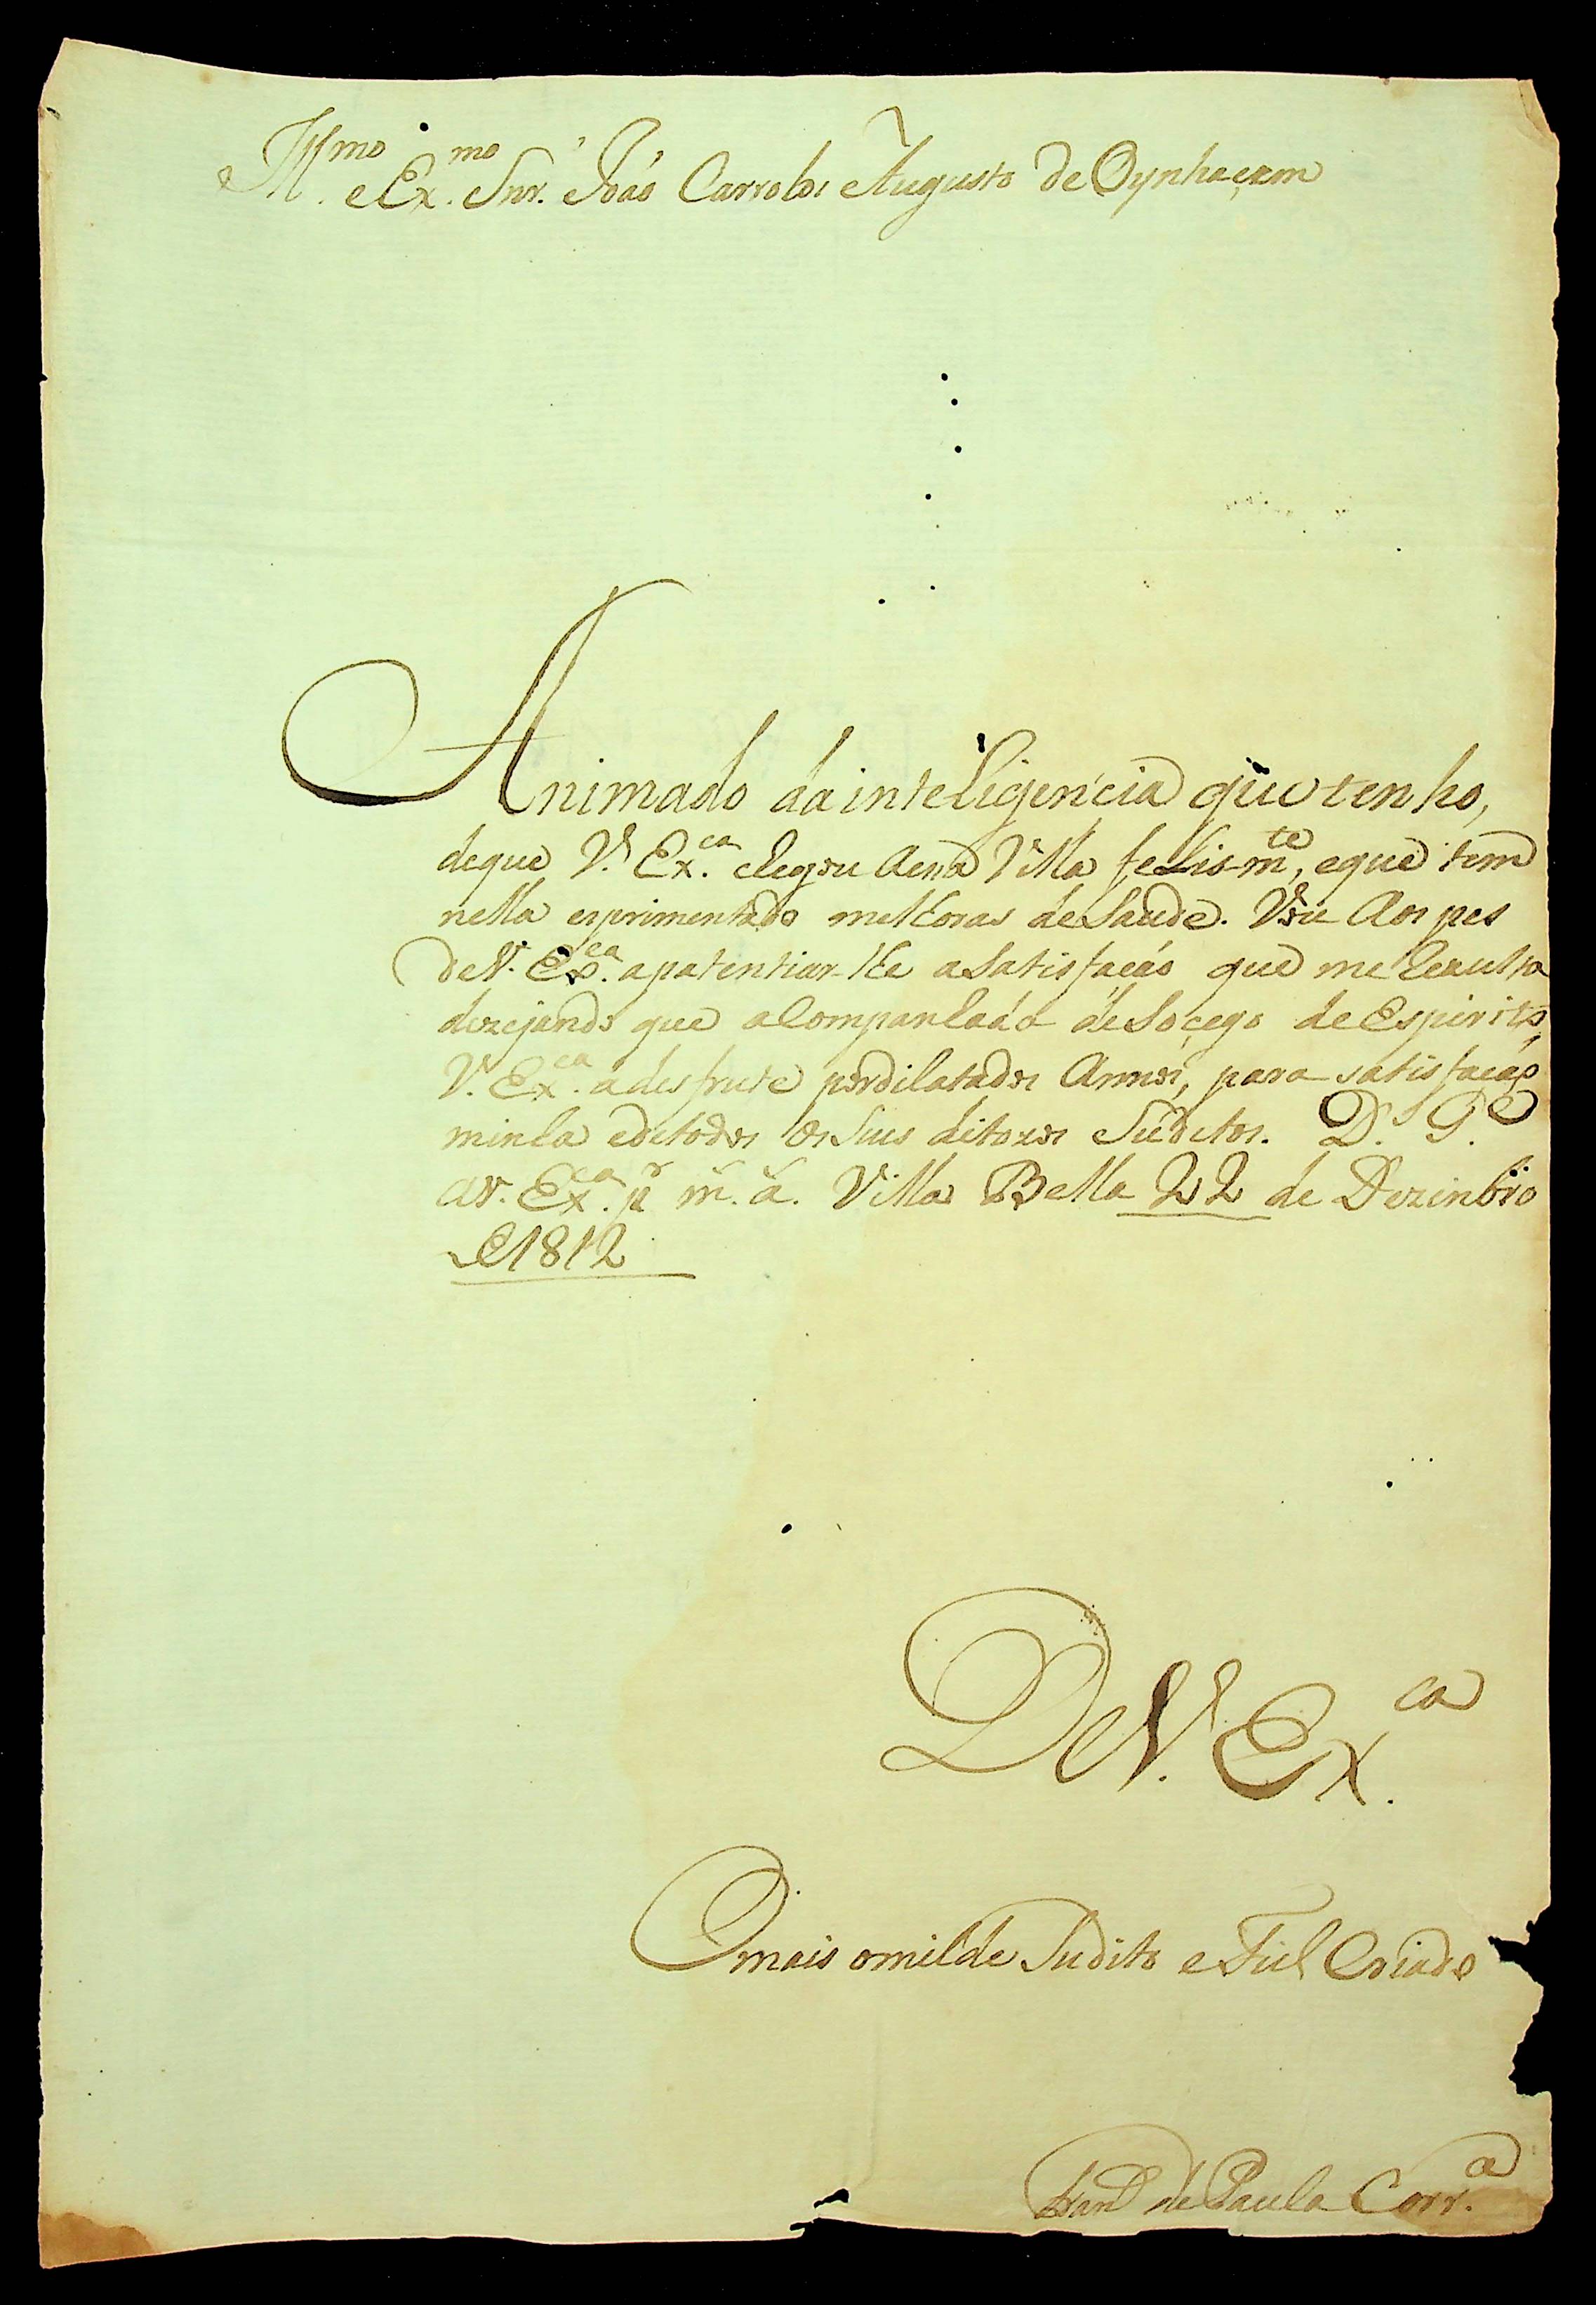 Ill.mo e Ex.mo Snr. João Carrolos Augusto de Oynhaezm
Animado da inteligencia que tenho,
deque V. Ex.ca chegou aessa Villa felis-m.te, eque tem
nella esprimentado melhoras deSaude. Vou Aos pes
deV. Ex.ca apatentiar-lhe aSatisfação que me Rezulta
dezejando que aCompanhada deSoçego de Espirito,
V. Ex.ca adesfrute pordilatados Annos, para satisfação
minha edetodos os Seus ditozos Suditos. D.s G.e
aV. Ex.ca p.r m. a. Villa Bella 22 de Dezinbro
de 1812
DeV. Ex.ca
O mais omilde Sudito e Fiel Criado
Fran.co de Paula Corr.a